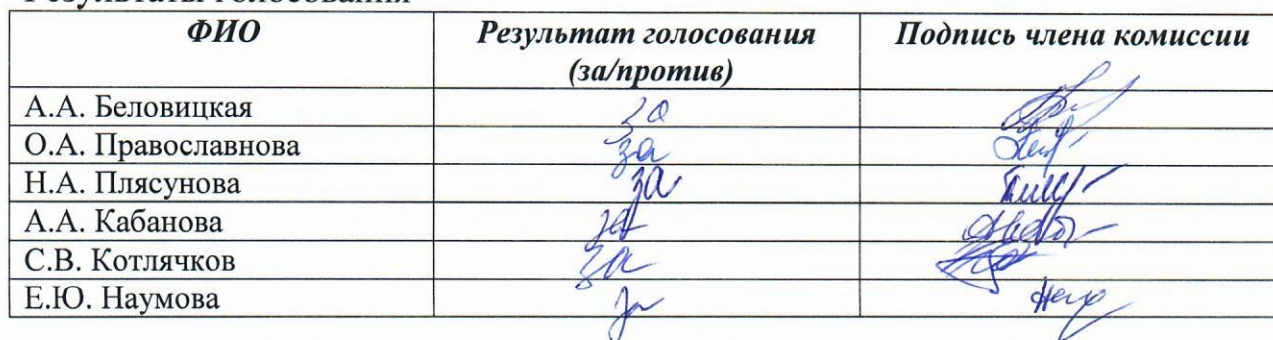 Результаты голосования
ФИО Результат голосования Подпись члена комиссии
(за/против)
А.А. Беловицкая за
О.А. Православнова за
Н.А. Плясунова за
А.А. Кабанова за
С.В. Котлячков за
Е.Ю. Наумова за